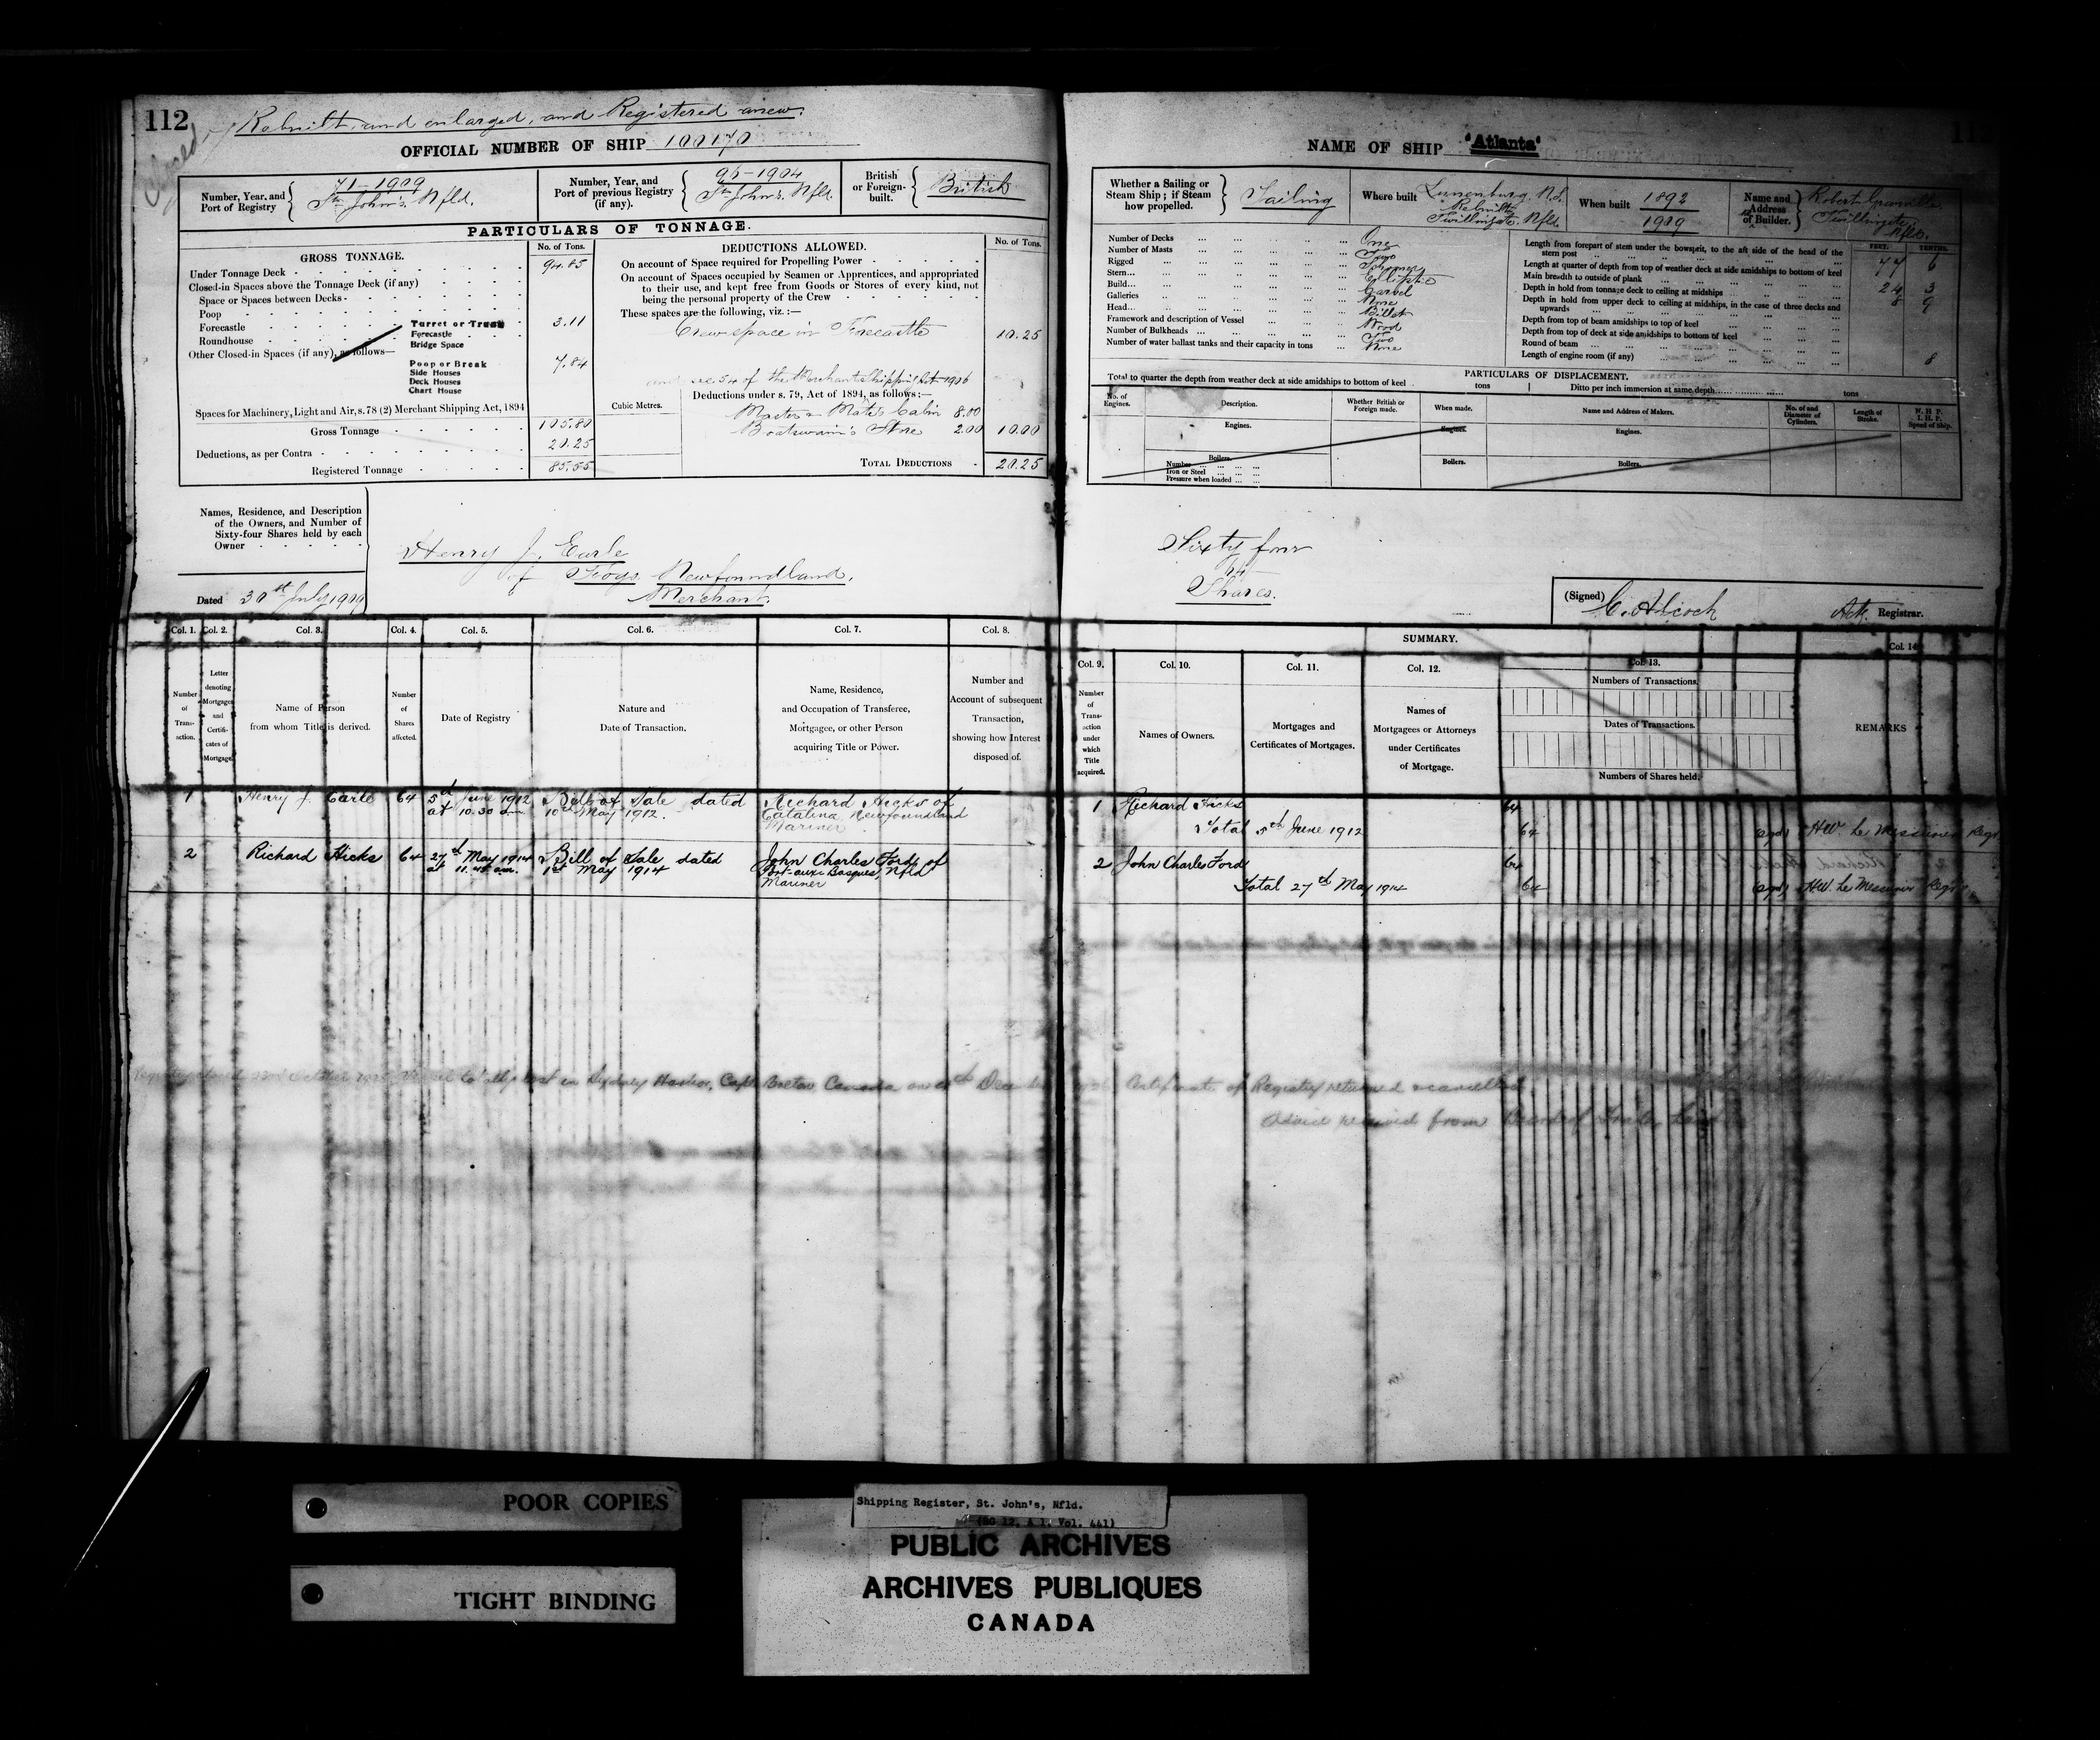 112
Rebuilt and enlarged, and Registered anew.
Closed
OFFICIAL NUMBER OF SHIP 100170
Number, Year, and Port of Registry 71-1909 St. John's. Nfld.
Number, Year, and Port of previous Registry (if any). 96-1904 St. John's. Nfld.
British or Foreign-built. British
PARTICULARS OF TONNAGE.
GROSS TONNAGE. No. of Tons.
Under Tonnage Deck 94.85
Closed-in Spaces above the Tonnage Deck (if any)
Space or Spaces between Decks
Poop
Forecastle
Roundhouse
Other Closed-in Spaces (if any), as follows—
Turret or Trunk
Forecastle 3.11
Bridge Space
Poop or Break 7.84
Side Houses
Deck Houses
Chart House
Spaces for Machinery, Light and Air, s.78 (2) Merchant Shipping Act, 1894
Gross Tonnage 105.80
Deductions, as per Contra 20.25
Registered Tonnage 85.55
Cubic Metres.
DEDUCTIONS ALLOWED. No. of Tons.
On account of Space required for Propelling Power
On account of Spaces occupied by Seamen or Apprentices, and appropriated
to their use, and kept free from Goods or Stores of every kind, not
being the personal property of the Crew
These spaces are the following, viz.:—
Crew space in Forecastle 10.25
and sec 54 of the Merchant Shipping Act 1906
Deductions under s. 79, Act of 1894, as follows:—
Master & Mate's Cabin 8.00
Boatswain's Store 2.00 10.00
TOTAL DEDUCTIONS 20.25
Names, Residence, and Description
of the Owners, and Number of
Sixty-four Shares held by each
Owner
Henry J. Earle
of Fogo, Newfoundland,
Merchant.
Dated 30st July 1909
NAME OF SHIP "Atlanta"
Whether a Sailing or Steam Ship; if Steam how propelled. Sailing
Where built Lunenburg, N.S.
Rebuilt
Twillingate. Nfld.
When built 1892
1909
Name and Address of Builder. Robert
Twillingate,
Nfld.
Number of Decks One
Number of Masts Two
Rigged Schooner
Stern Elliptic
Build Carvel
Galleries None
Head Billet
Framework and description of Vessel Wood
Number of Bulkheads Two
Number of water ballast tanks and their capacity in tons None
FEET. TENTHS.
Length from forepart of stem under the bowsprit, to the aft side of the head of the
stern post 77 6
Length at quarter of depth from top of weather deck at side amidships to bottom of keel
Main breadth to outside of plank 24 3
Depth in hold from tonnage deck to ceiling at midships 8 9
Depth in hold from upper deck to ceiling at midships, in the case of three decks and
upwards
Depth from top of beam amidships to top of keel
Depth from top of deck at side amidships to bottom of keel
Round of beam 8
Length of engine room (if any)
PARTICULARS OF DISPLACEMENT.
Total to quarter the depth from weather deck at side amidships to bottom of keel tons Ditto per inch immersion at same depth tons
No. of Engines. Description. Whether British or Foreign made. When made. Name and Address of Makers. No. of and Diameter of Cylinders. Length of Stroke. N. H. P. I. H. P. Speed of Ship.
Engines. Engines. Engines.
Boilers. Boilers. Boilers.
Number
Iron or Steel
Pressure when loaded
Sixty four
64
Shares.
(Signed) C. Alcock Actg. Registrar.
Col. 1. Col. 2. Col. 3. Col. 4. Col. 5. Col. 6. Col. 7. Col. 8.
Number of Transaction.
Letter denoting Mortgages and Certificates of Mortgage.
Name of Person from whom Title is derived.
Number of Shares affected.
Date of Registry
Nature and Date of Transaction.
Name, Residence, and Occupation of Transferee, Mortgagee, or other Person acquiring Title or Power.
Number and Account of subsequent Transaction, showing how Interest disposed of.
SUMMARY.
Col. 9. Col. 10. Col. 11. Col. 12. Col. 13. Col. 14
Number of Transaction under which Title acquired.
Names of Owners.
Mortgages and Certificates of Mortgages.
Names of Mortgagees or Attorneys under Certificates of Mortgage.
Numbers of Transactions.
Dates of Transactions.
Numbers of Shares held.
REMARKS
1 Henry J. Earle 64 5d June 1912 Bill of Sale dated Richard Hicks of
at 10.30 a.m. 10th May 1912. Catalina Newfoundland
Mariner
1 Richard Hicks 64
Total 5th June 1912 64 (sgd) H.W. Le Messurier Regr
2 Richard Hicks 64 27th May 1914 Bill of Sale dated John Charles Ford, of
at 11.45 a.m. 1st May 1914 Port-aux-Basques, Nfld
Mariner
2 John Charles Ford 64
Total 27th May 1914 64 (sgd) H.W. Le Messurier Regr
totally lost in Sydney Harbor, Cape Breton Canada on Certificate of Registry returned & cancelled.
Advice received from Board of Trade
POOR COPIES
TIGHT BINDING
Shipping Register, St. John's, Nfld.
(RG 12, A 1, Vol. 441)
PUBLIC ARCHIVES
ARCHIVES PUBLIQUES
CANADA